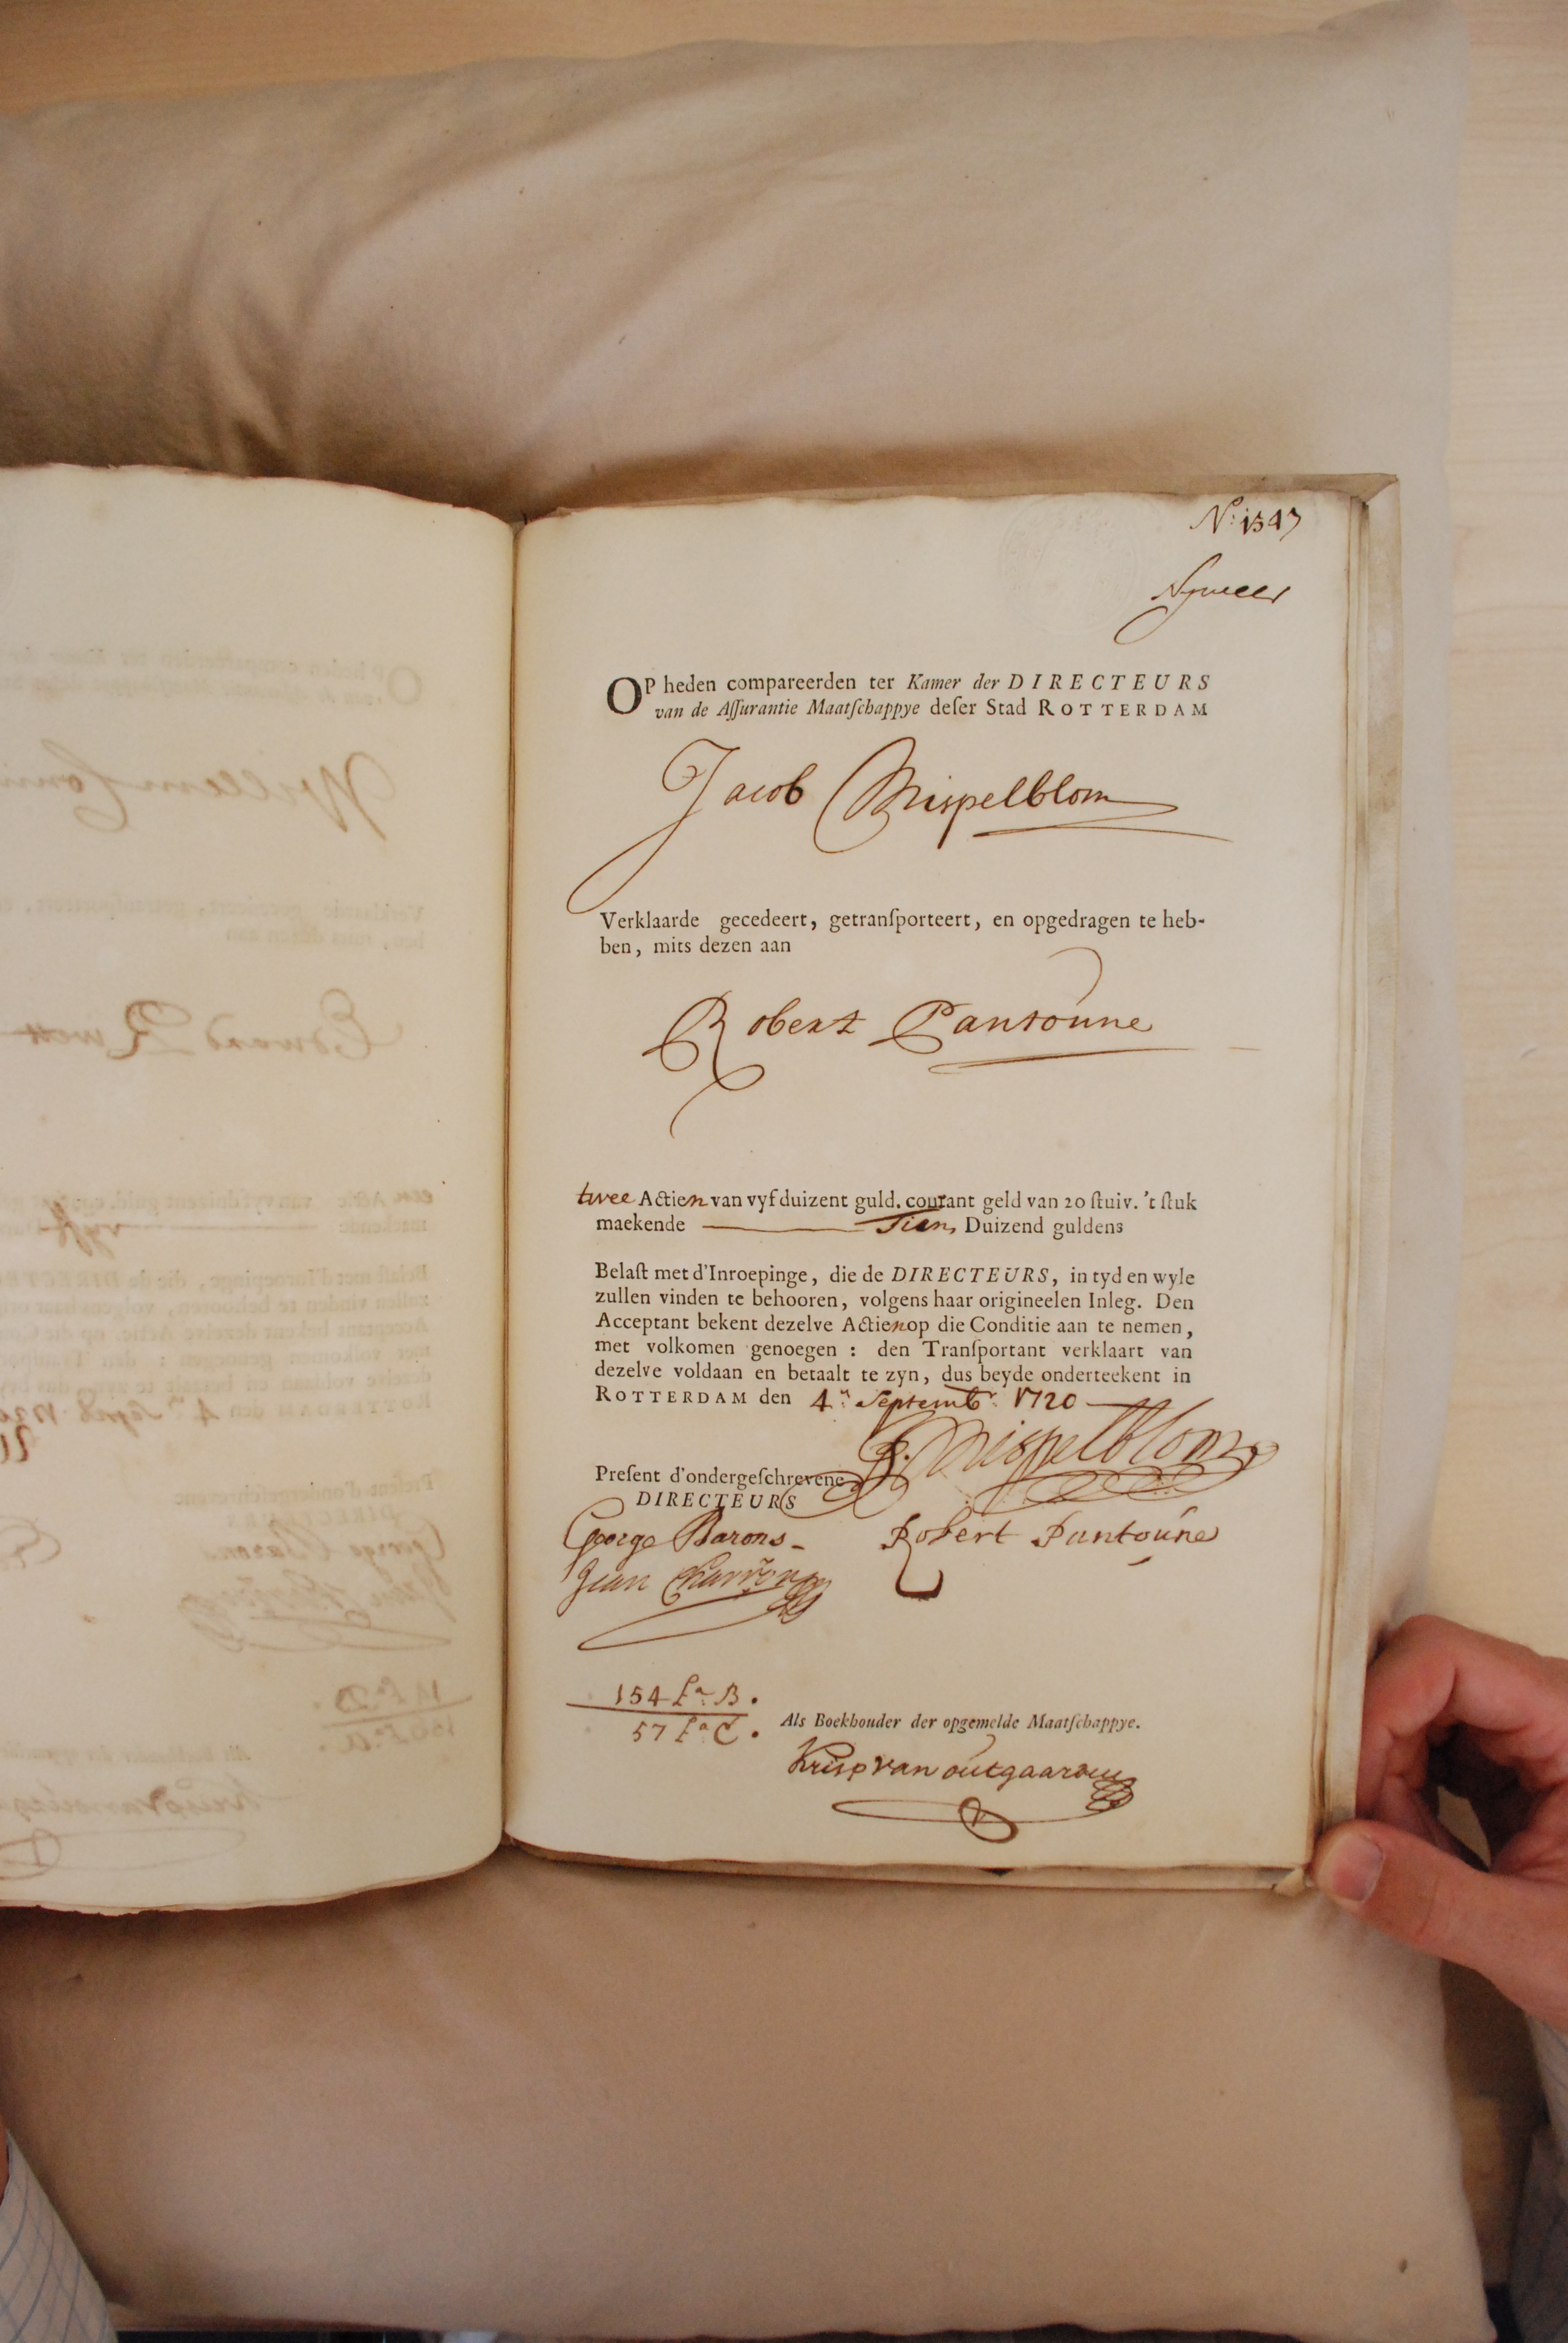 N:o 1347
OP heden compareerden ter Kamer der DIRECTEURS
van de Aſſurantie Maatſchappye deſer Stad ROTTERDAM
Jacob Mispelblom
Verklaarde gecedeert, getranſporteert, en opgedragen te heb-
ben, mits dezen aan
Robert Pantoune
twee Actien van vyf duizent guld. courant geld van 20 ſtuiv. 't ſtuk
maekende Tien Duizend guldens
Belaſt met d'Inroepinge, die de DIRECTEURS, in tyd en wyle
zullen vinden te behooren, volgens haar origineelen Inleg. Den
Acceptant bekent dezelve Actien op die Conditie aan te nemen,
met volkomen genoegen : den Tranſportant verklaart van
dezelve voldaan en betaalt te zyn, dus beyde onderteekent in
ROTTERDAM den 4:n Septemb:r 1720
J. Mispelblom
Preſent d'ondergeſchrevene
DIRECTEURS
George Barons Robert Pantoune
Jean Charron
154 L:a B.
57 L:a C.
Als Boekhouder der opgemelde Maatſchappye.
Krisp van outgaarden